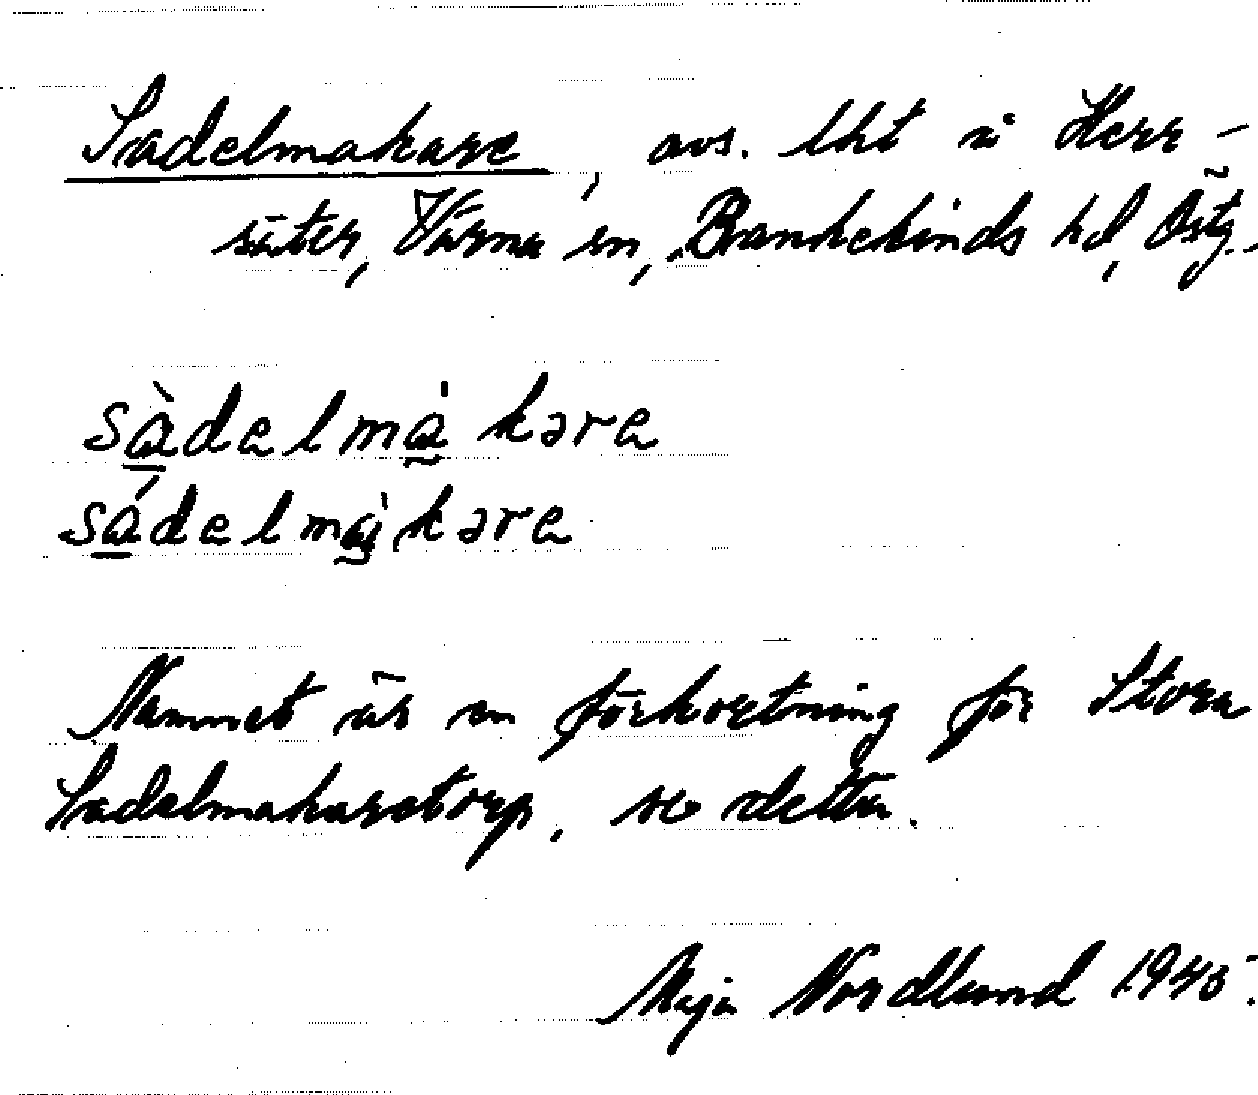 Sadelmakare, avs. lht i Herr-
säter, Värna sn, Bankekinds hd, Östg.
sàdelmákəra
sádelmàkəra
Namnet är en förkortning för Stora
Sadelmakaretorp, se detta.
Maja Nordlund 1945.